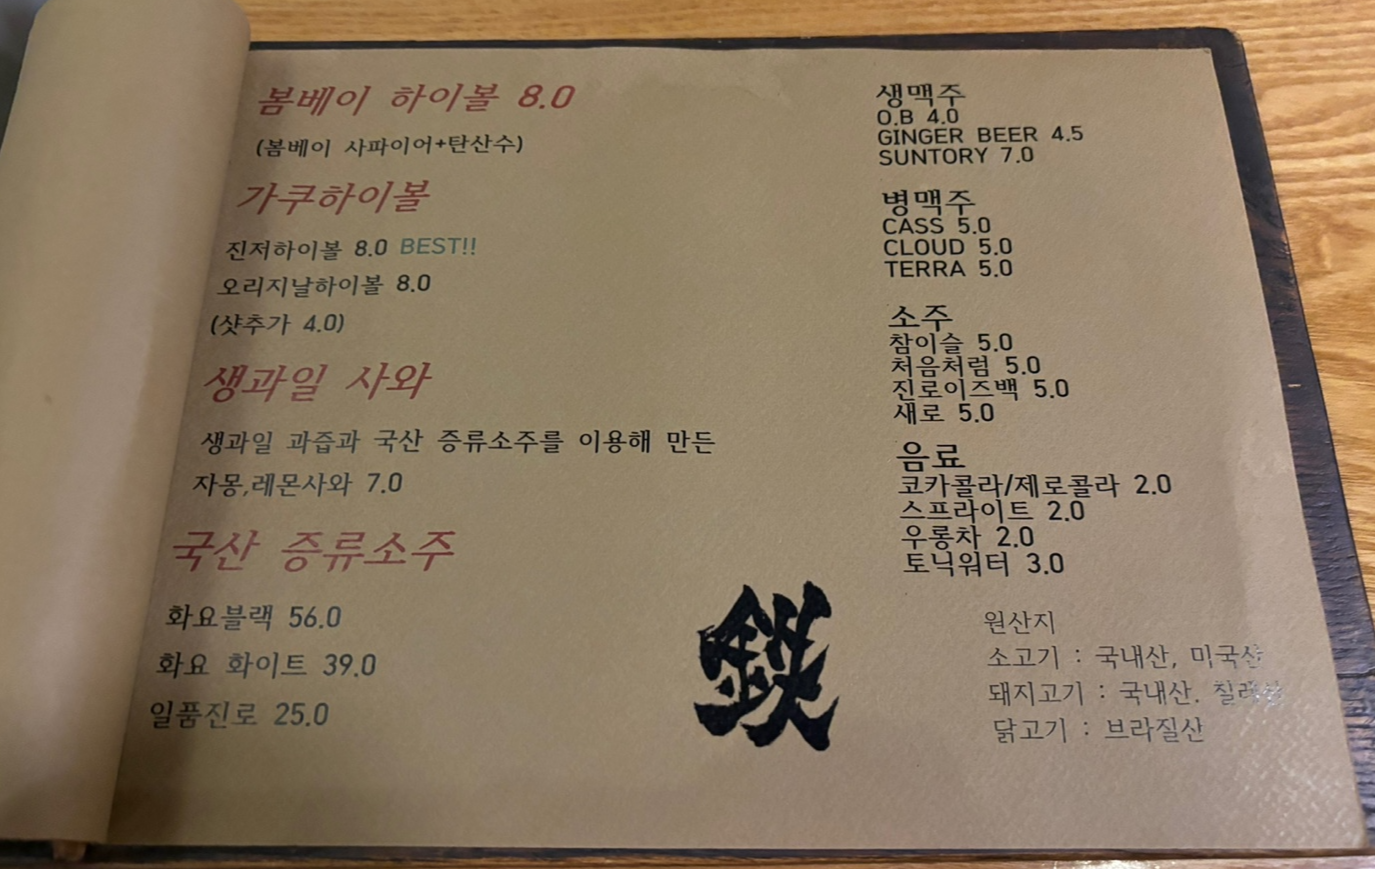 봄베이 하이볼 8.0
(봄베이 사파이어+탄산수)
가쿠하이볼
진저하이볼 8.0 BEST!!
오리지날하이볼 8.0
(샷추가 4.0)
생과일 사와
생과일 과즙과 국산 증류소주를 이용해 만든
자몽,레몬사와 7.0
국산 증류소주
화요블랙 56.0
화요 화이트 39.0
일품진로 25.0
생맥주
O.B 4.0
GINGER BEER 4.5
SUNTORY 7.0
병맥주
CASS 5.0
CLOUD 5.0
TERRA 5.0
소주
참이슬 5.0
처음처럼 5.0
진로이즈백 5.0
새로 5.0
음료
코카콜라/제로콜라 2.0
스프라이트 2.0
우롱차 2.0
토닉워터 3.0
원산지
소고기 : 국내산, 미국산
돼지고기 : 국내산. 칠레산
닭고기 : 브라질산
鉄